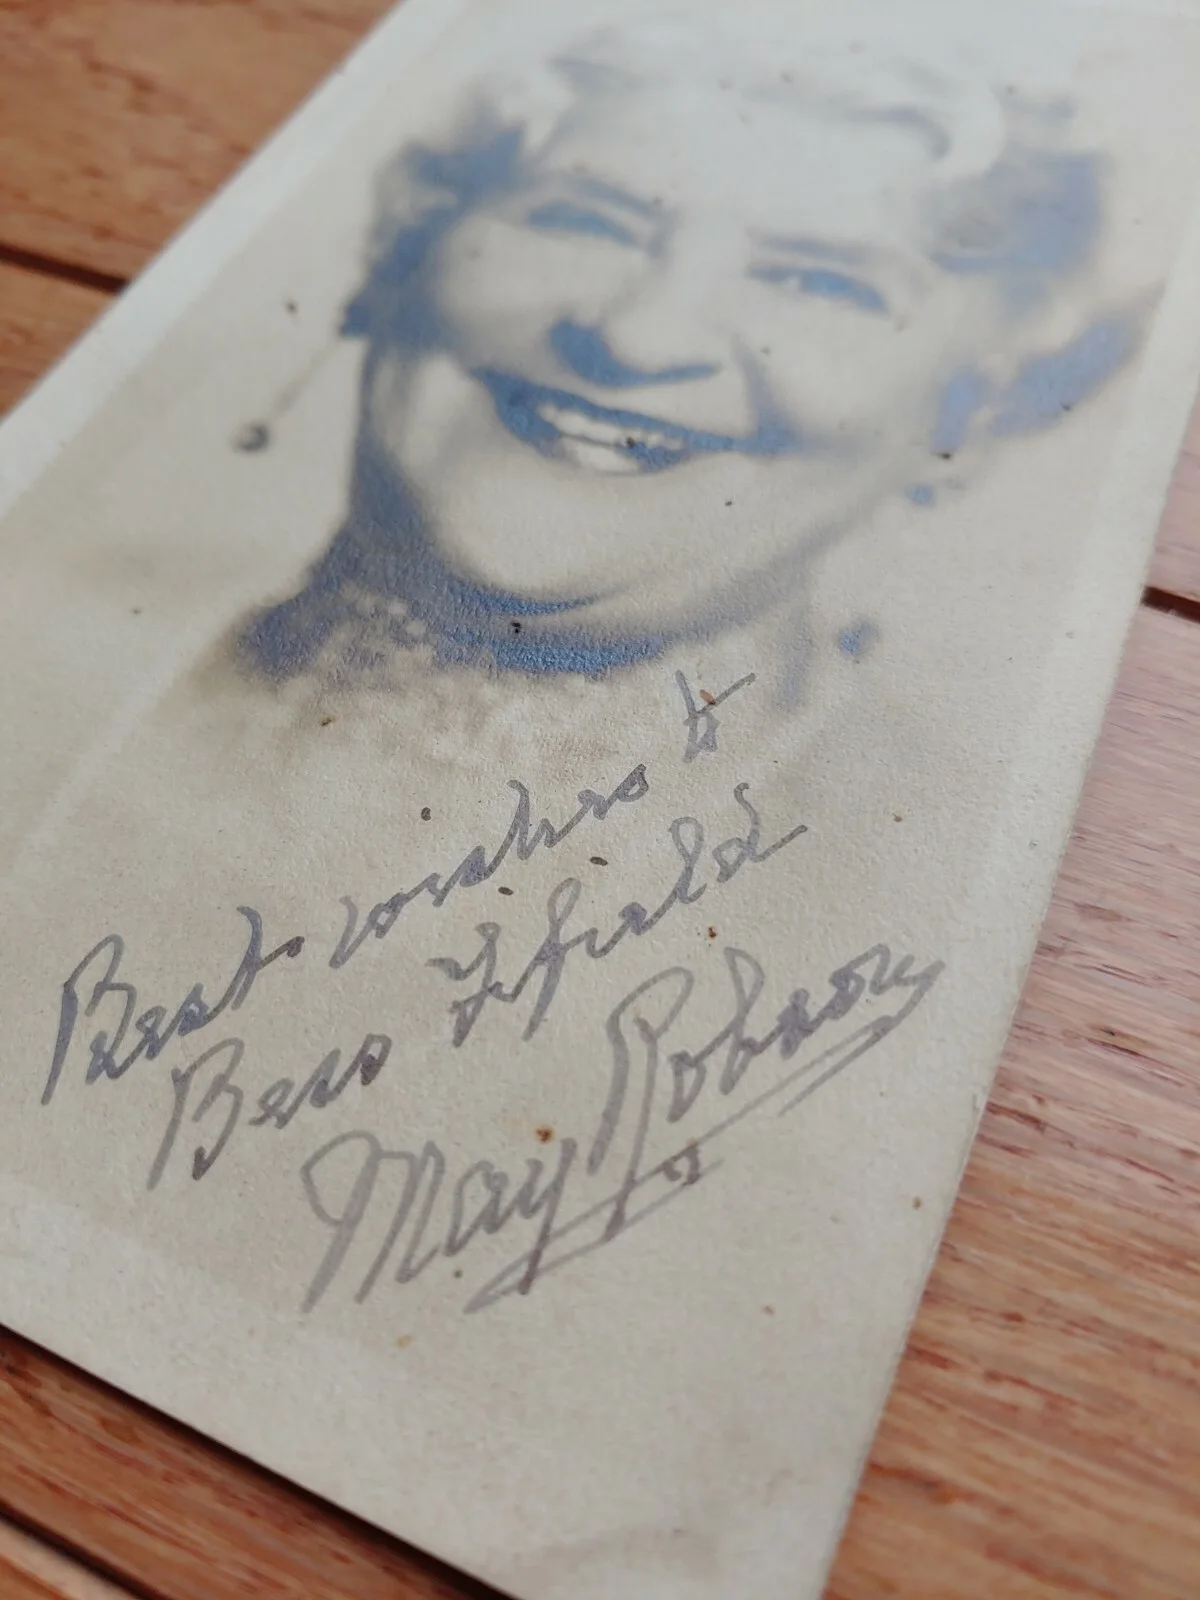 Best wishes to
Bess Fyfield
May Robson